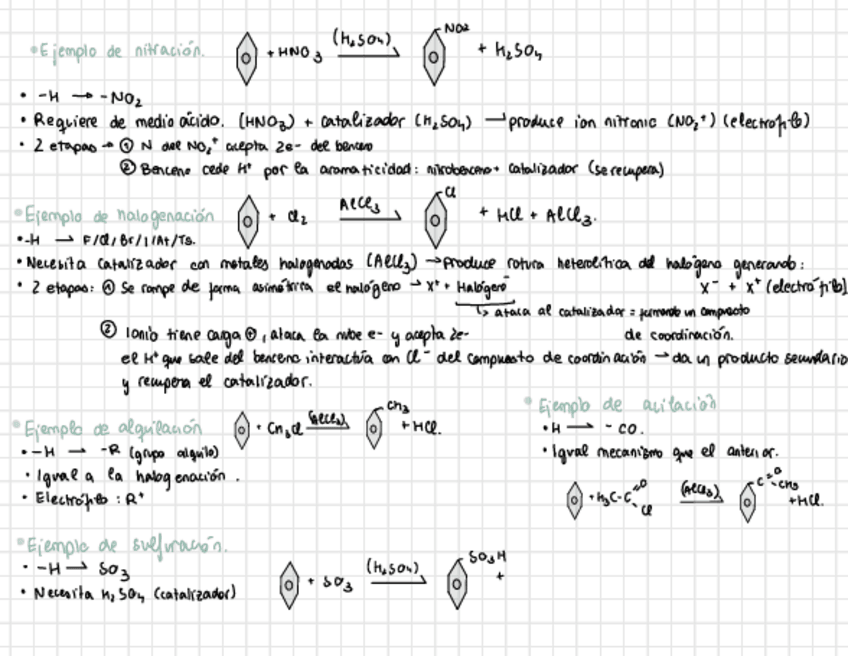 • Ejemplo de nitración. + HNO3 (H2SO4) NO2 + H2SO4
• -H → -NO2
• Requiere de medio ácido. (HNO3) + catalizador (H2SO4) → produce ion nitronic (NO2+) (electrófilo)
• 2 etapas → ① N del NO2+ acepta 2e- del benceno
② Benceno cede H+ por la aromaticidad: nitrobenceno + catalizador (se recupera)
• Ejemplo de halogenación + Cl2 AlCl3 Cl + HCl + AlCl3.
• -H → F/Cl/Br/I/At/Ts.
• Necesita catalizador con metales halogenados (AlCl3) → Produce rotura heterolítica del halógeno generando:
• 2 etapas: ① Se rompe de forma asimétrica el halógeno → X+ + Halógeno- X- + X+ (electrófilo)
↳ ataca al catalizador = formando un compuesto
de coordinación.
② Ionio tiene carga ⊕, ataca la nube e- y acepta 2e-
el H+ que sale del benceno interactúa con Cl- del compuesto de coordinación → da un producto secundario
y recupera el catalizador.
• Ejemplo de alquilación + CH3Cl (AlCl3) CH3 + HCl.
• -H → -R (grupo alquilo)
• Igual a la halogenación.
• Electrófilo: R+
• Ejemplo de acilación
• H → - CO.
• Igual mecanismo que el anterior.
+ H3C-C=O Cl (AlCl3) C=O -CH3 + HCl.
• Ejemplo de sulfuración.
• -H → SO3
• Necesita H2SO4 (catalizador)
+ SO3 (H2SO4) SO3H +